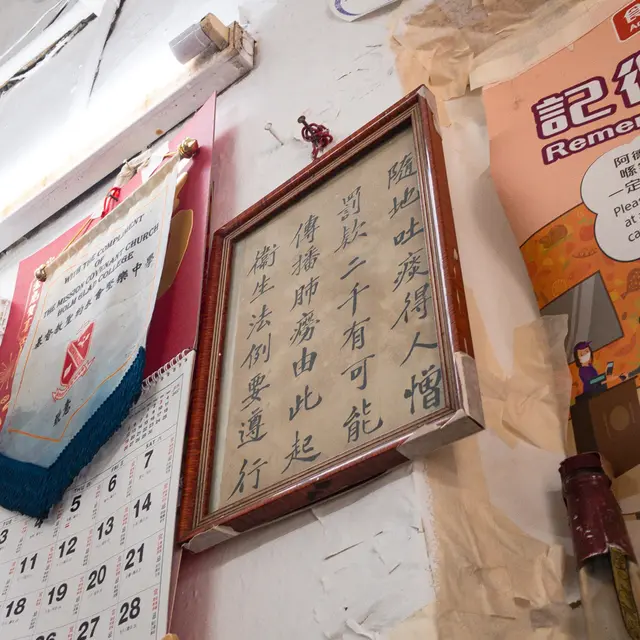 WITH THE COMPLIMENT
OF
THE MISSION COVENANT CHURCH
HOLM GLAD COLLEGE
基督教聖約教會堅樂中學
5
6
7
11
12
13
14
18
19
20
21
25
26
27
28
隨地吐痰得人憎
罰款二千有可能
傳播肺癆由此起
衞生法例要遵行
記得
Remem
阿
喺
一定
Pleas